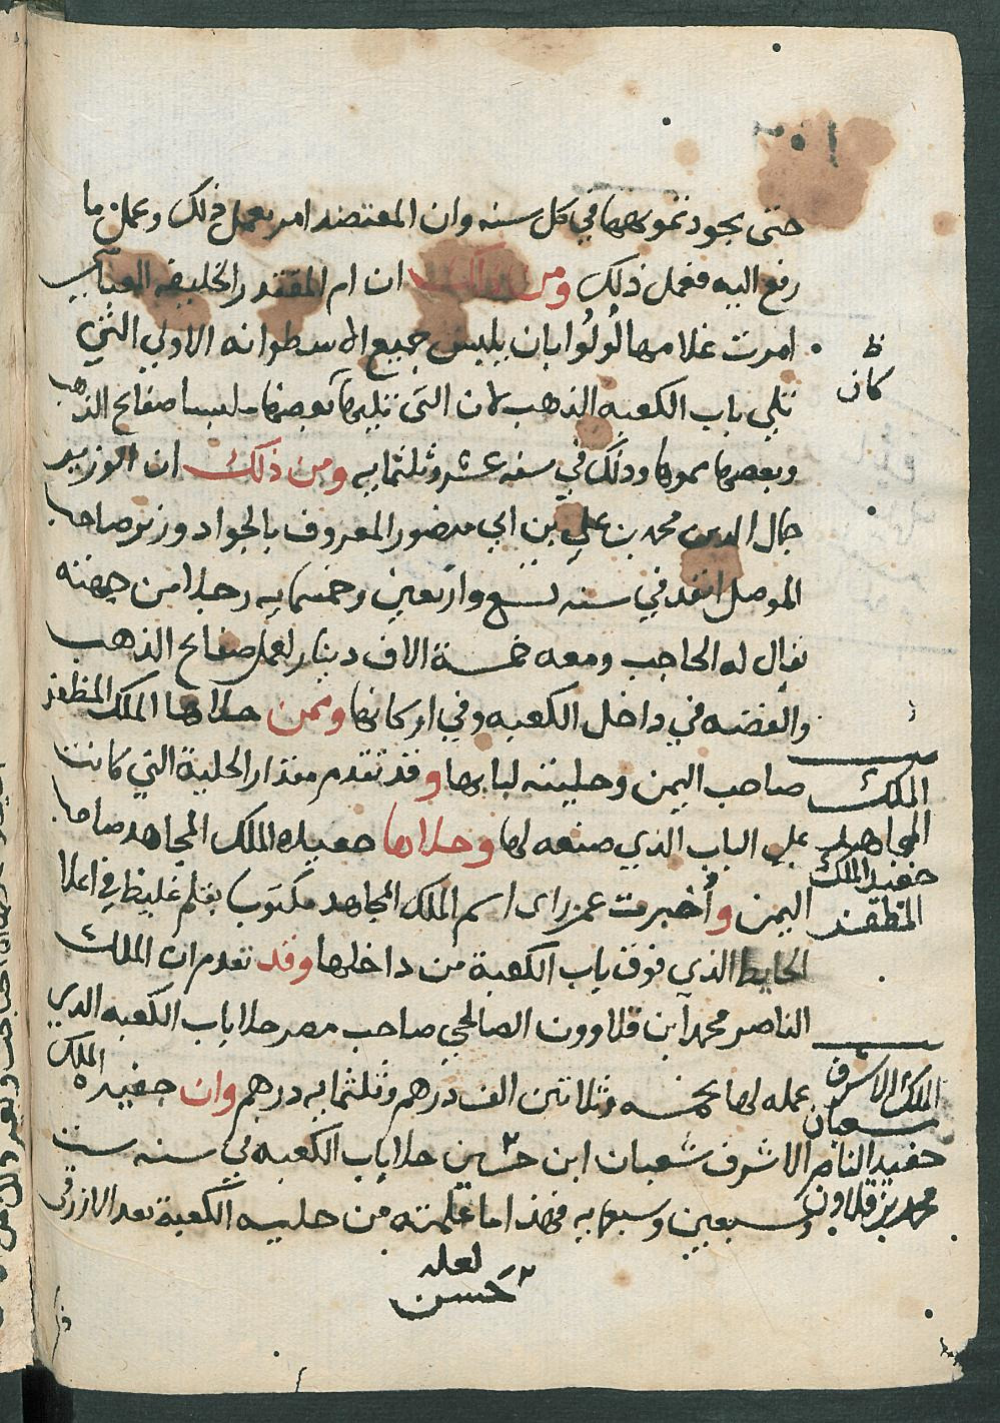 حتى يجود تمويهها في كل سنه وان المعتضد امر بعمل ذلك وعمل ما
رفع اليه فعمل ذلك ومن ذلك ان ام المقتدر الخليفه العباسي
امرت غلامها لولوا بان يلبس جميع الاسطوانه الاولي التي
تلي باب الكعبه الذهب لان التي تليها بعضها ملبسا صفايح الذهب
وبعضها مموها وذلك في سنه عشر وثلثمايه ومن ذلك ان الوزير
جمال الدين محمد بن علي بن ابي منصور المعروف بالجواد وزير صاحب
الموصل انفذ في سنه تسع واربعين وخمسمايه رجلا من جهته
يقال له الحاجب ومعه خمسة الاف دينار لعمل صفايح الذهب
والفضه في داخل الكعبه وفي اركانها وممن حلاها الملك المظفر
صاحب اليمن وحليته لبابها وقد تقدم مقدار الحلية التي كانت
علي الباب الذي صنعه لها وحلاها حفيده الملك المجاهد صاحب
اليمن وأخبرت عمن راى اسم الملك المجاهد مكتوب بقلم غليظ في اعلا
الحايط الذي فوق باب الكعبة من داخلها وقد تقدم ان الملك
الناصر محمد ابن قلاوون الصالحي صاحب مصر حلا باب الكعبه الذي
عمله لها بخمسه وثلاثين الف درهم وثلثمايه درهم وان حفيده الملك
الاشرف شعبان ابن حسين حلا باب الكعبه في سنه ست
وسبعين وسبعمايه فهذا ما علمته من حليه الكعبة بعد الازرقى
لعله
حسن
ظ
كان
الملك
المجاهد
حفيد الملك
المظفر
الملك الاشرف
شعبان
حفيد الناصر
محمد بن قلاوون